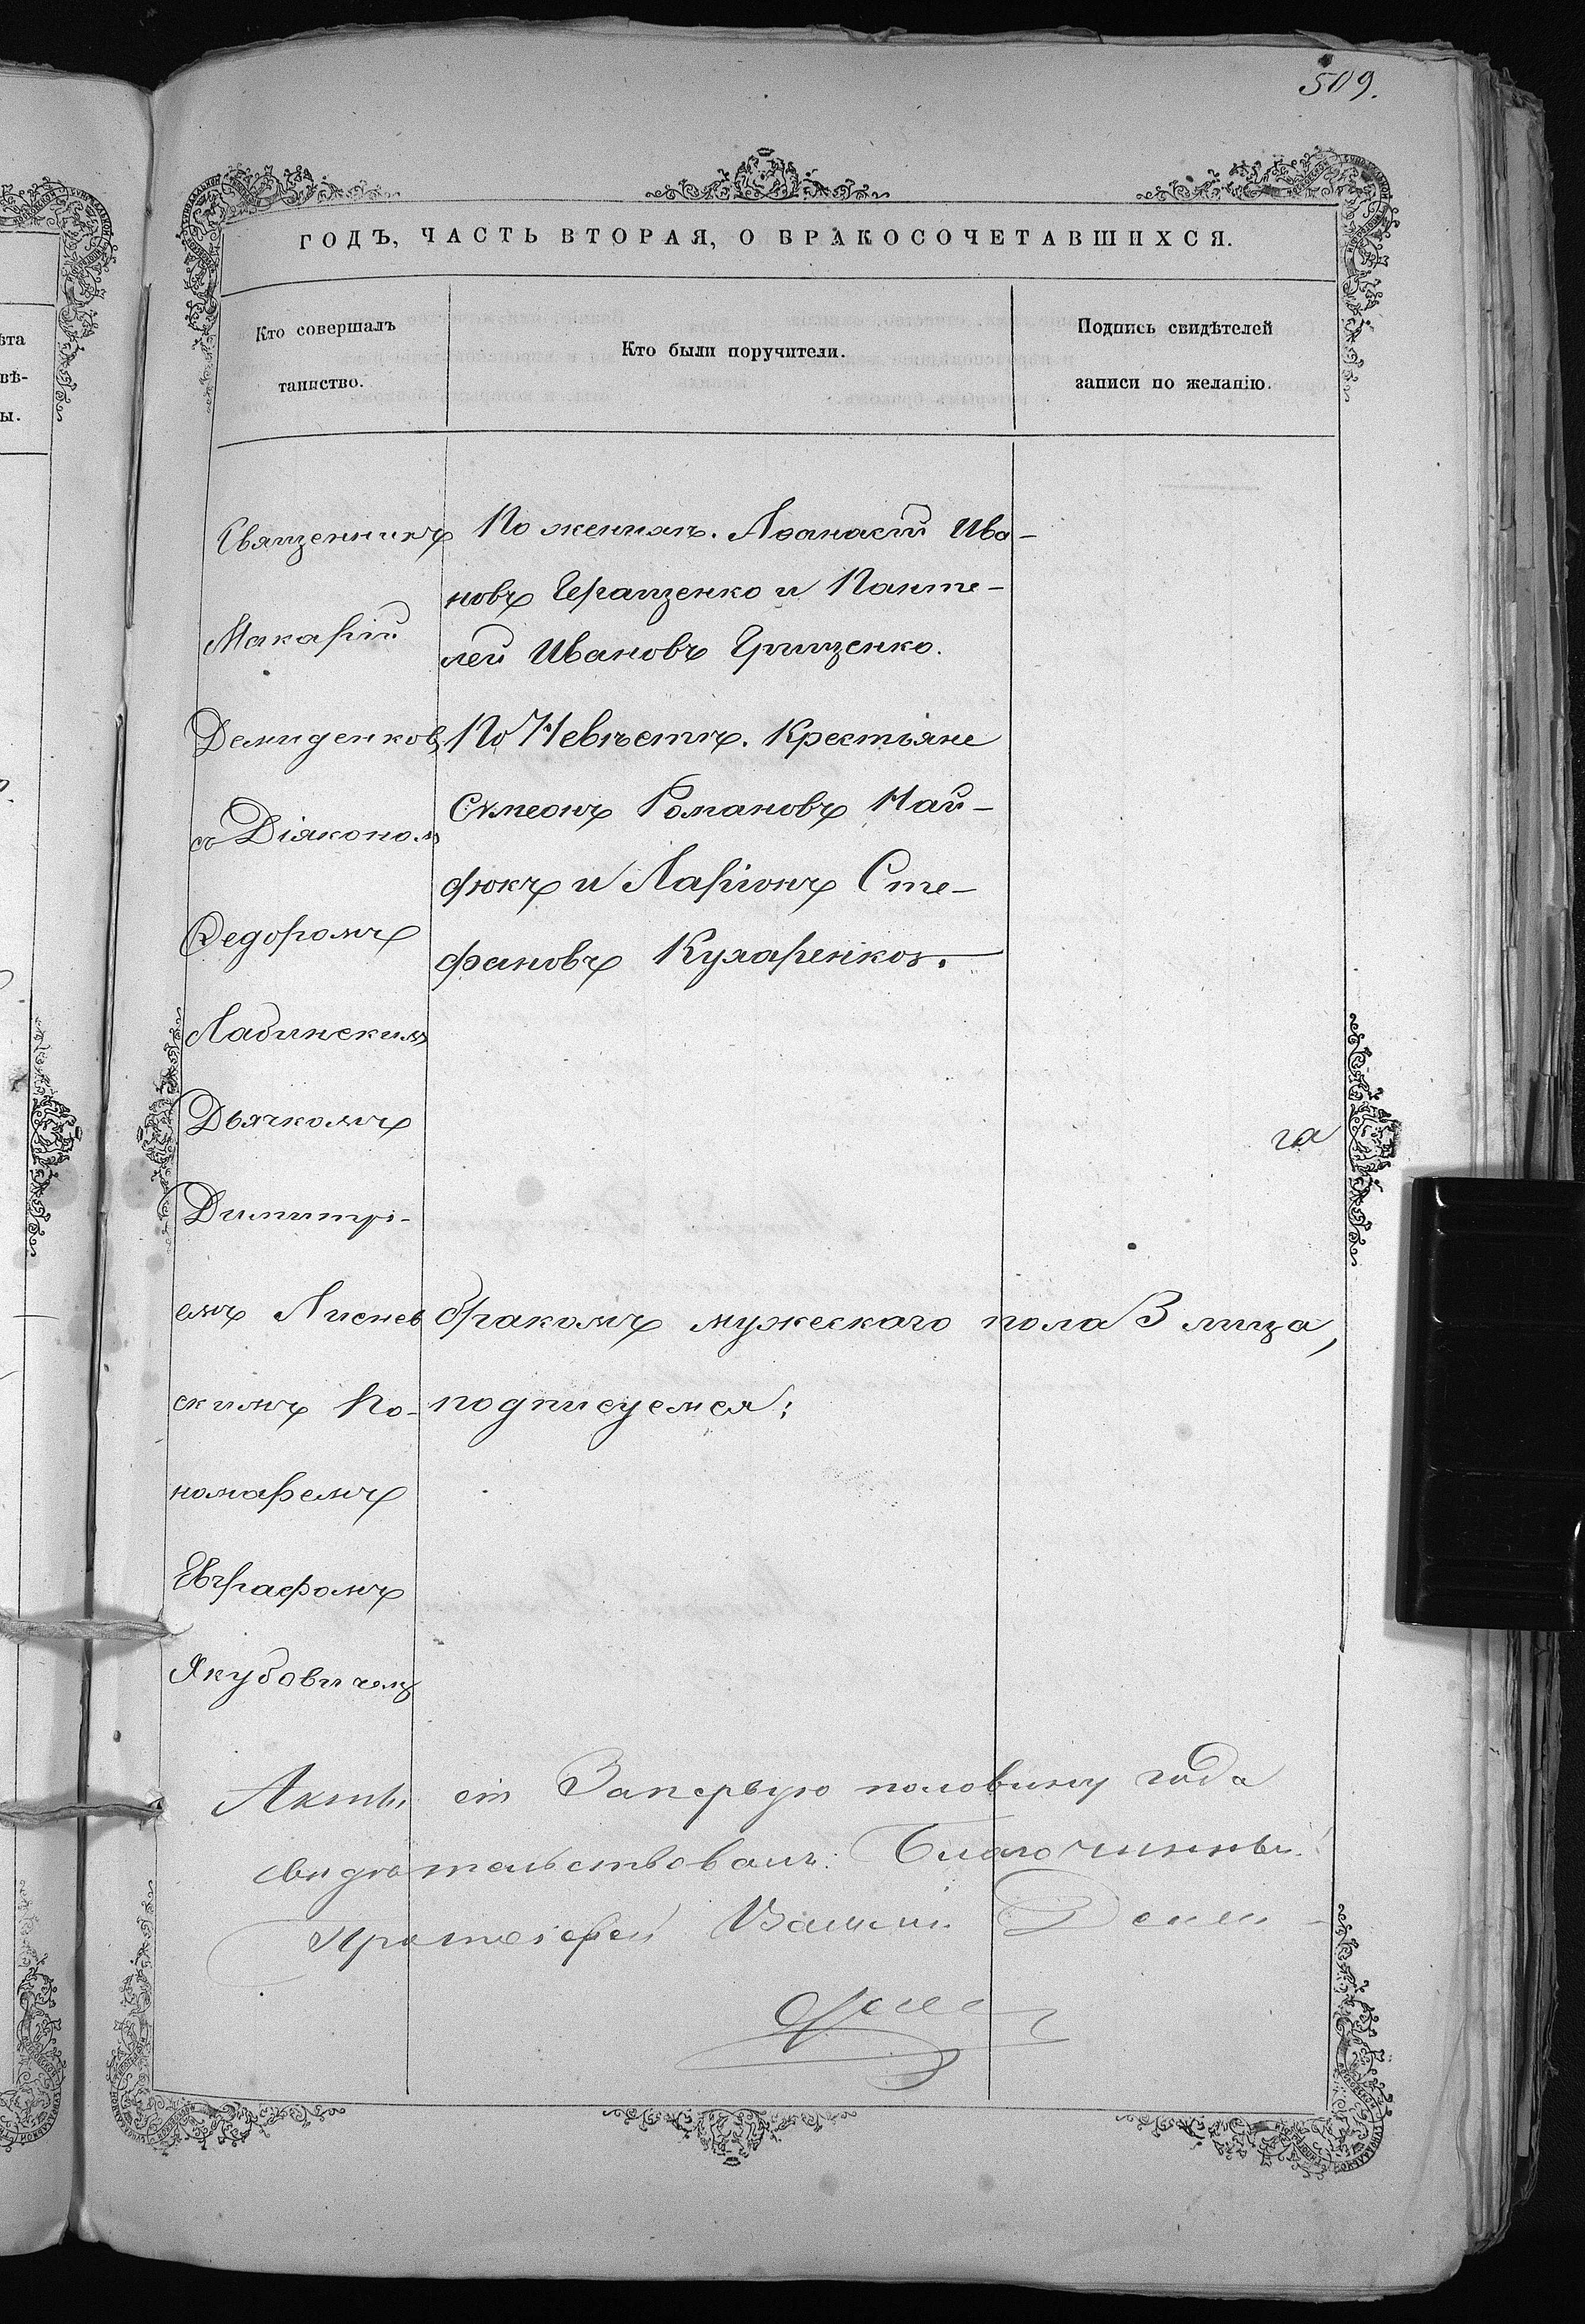 509.
ГОДЪ, ЧАСТЬ ВТОРАЯ, О БРАКОСОЧЕТАВШИХСЯ.
Кто совершалъ
таинство.
Кто были поручители.
Подпись свидѣтелей
записи по желанію.
Священникъ
Макарій
Демиденковъ
съ Діякономъ
Ѳедоромъ
Лабинскимъ
Дьячкомъ
Димитрі-
емъ Лиснев
скимъ По-
номаремъ
Евграфомъ
Якубовичемъ
По женихѣ. Аѳанасій Ива-
новъ Геращенко и Панте-
лей Ивановъ Грищенко.
По Невѣстѣ. Крестьяне
Сѵмеонъ Романовъ Най-
дюкъ и Ларіонъ Сте-
фановъ Кухаренков.
га
бракомъ мужескаго пола 3 лица,
подписуемся:
Акты сіи За первую половину года
свидѣтельствовалъ: Благочинный
Протоіерей